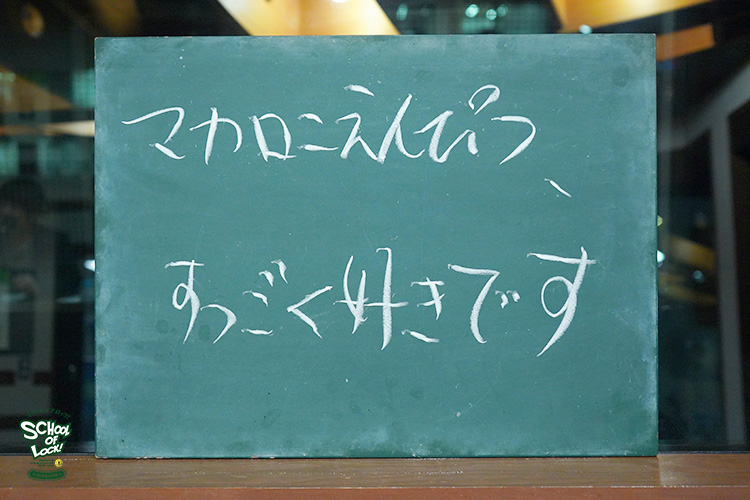 マカロニえんぴつ、
すっごく好きです
SCHOOL
OF
LOCK!